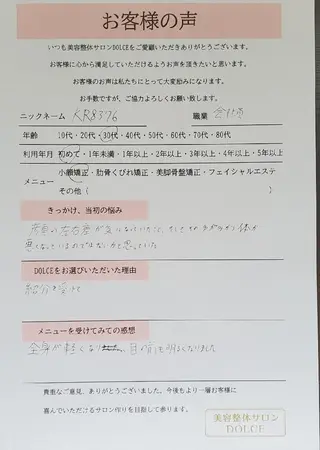 お客様の声
いつも美容整体サロンDOLCEをご愛顧いただきありがとうございます。
お客様に心から満足していただけるようお声を頂きたいと思います。
お客様のお声は私たちにとって大変励みになります。
お手数ですが、ご協力よろしくお願い致します。
ニックネーム KR8376 職業 会社員
年齢 10代・20代・30代・40代・50代・60代・70代・80代
利用年月 初めて・1年未満・1年以上・2年以上・3年以上・4年以上・5年以上
メニュー 小顔矯正・肋骨くびれ矯正・美脚骨盤矯正・フェイシャルエステ
その他（
きっかけ、当初の悩み
の左右差が
思っていた
DOLCEをお選びいただいた理由
紹介を受けて
メニューを受けてみての感想
全身が軽くなり、目の前も明るくなりました
貴重なご意見、ありがとうございました。今後もより一層お客様に
喜んでいただけるサロン作りを目指して参ります。
美容整体サロン
DOLCE